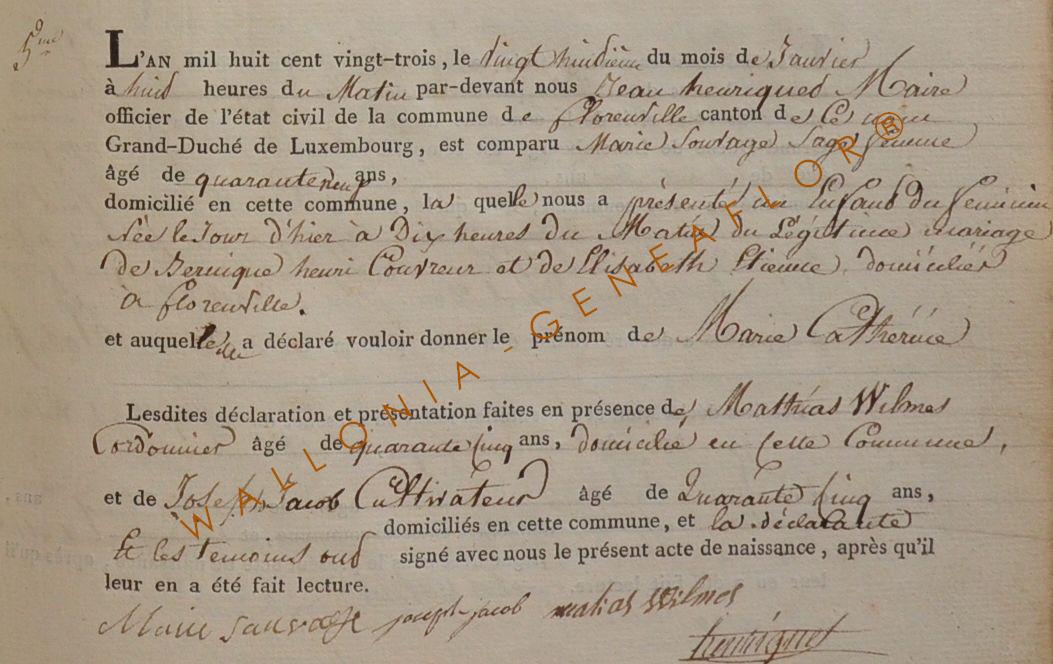 5me
L'AN mil huit cent vingt-trois, le vingt huidième du mois de Janvier
à huid heures du Matin par-devant nous Jean henriquet Maire
officier de l'état civil de la commune de florenville canton de
Grand-Duché de Luxembourg, est comparu Marie Sauvage Sage femme
âgé de quarante neuf ans,
domicilié en cette commune, la quelle nous a présenté un Enfant du feminin
Née le Jour d'hier à Dix heures du Matin du Légitime mariage
de Bernique henri Couvreur et de Elisabeth Etienne domiciliés
à florenville.
et auquelle elle a déclaré vouloir donner le prénom de Marie Cathérine
Lesdites déclaration et présentation faites en présence de Mathias Wilmes
Cordonnier âgé de quarante cinq ans, domicilié en cette Commune,
et de Joseph Jacob Cultivateur âgé de Quarante cinq ans,
domiciliés en cette commune, et la déclarante
Et les temoins ond signé avec nous le présent acte de naissance, après qu'il
leur en a été fait lecture.
Marie Sauvage joseph jacob matias Wilmes
henriquet
WALLONIA-GENEAFLOR®